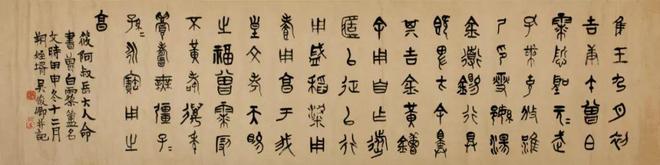 隹王九月初
吉庚午曾白
霖悊聖元=武=
孔黹克狄淮
尸印燮繁湯
金道錫行具
既卑方余擇
其吉金黃鑪
余用自乍旅
簠以征以行
用盛稻粱用
孝用享于我
皇文考天賜
之福曾霖叚
不黃耇萬年
眉壽無疆子=
孫=永寶用之
享
筱何叔岳大人命
書曾白霖簠名
文時甲申冬十二月
姪婿吳俊卿并記